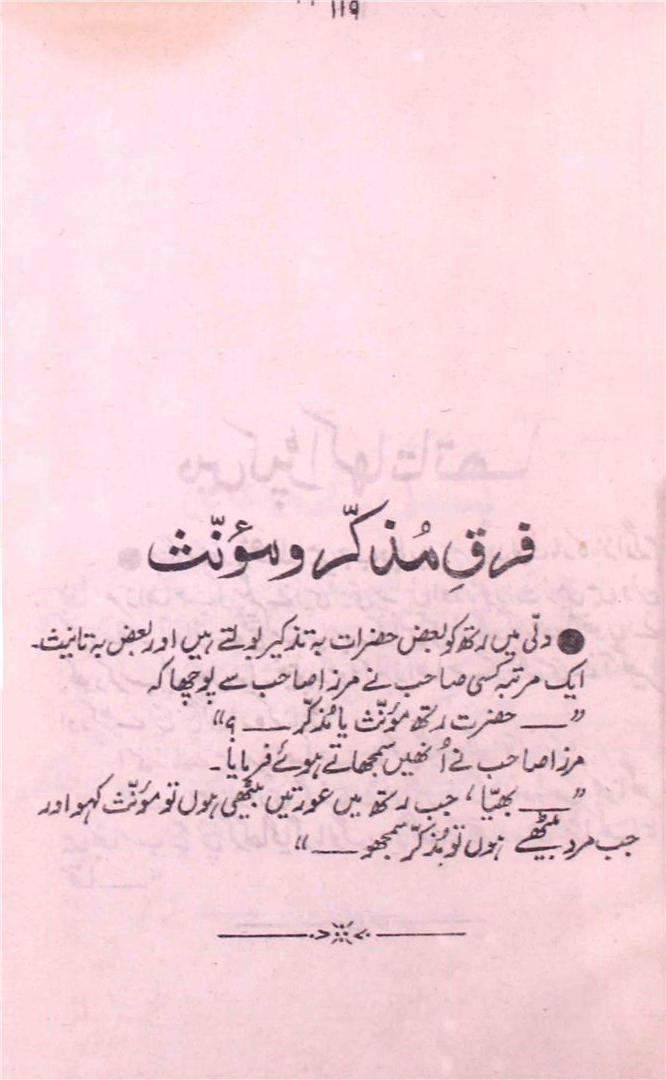 ۱۱۹
فرقِ مُذکّر و مؤنّث
● دلّی میں رتھ کو بعض حضرات بہ تذکیر بولتے ہیں اور بعض بہ تانیث۔
ایک مرتبہ کسی صاحب نے مرزا صاحب سے پوچھا کہ
”—— حضرت رتھ مؤنّث یا مُذکّر —— ؟“
مرزا صاحب نے اُنھیں سمجھاتے ہوئے فرمایا۔
”—— بھیّا، جب رتھ میں عورتیں بیٹھی ہوں تو مؤنّث کہو اور
جب مرد بیٹھے ہوں تو مُذکّر سمجھو ——“